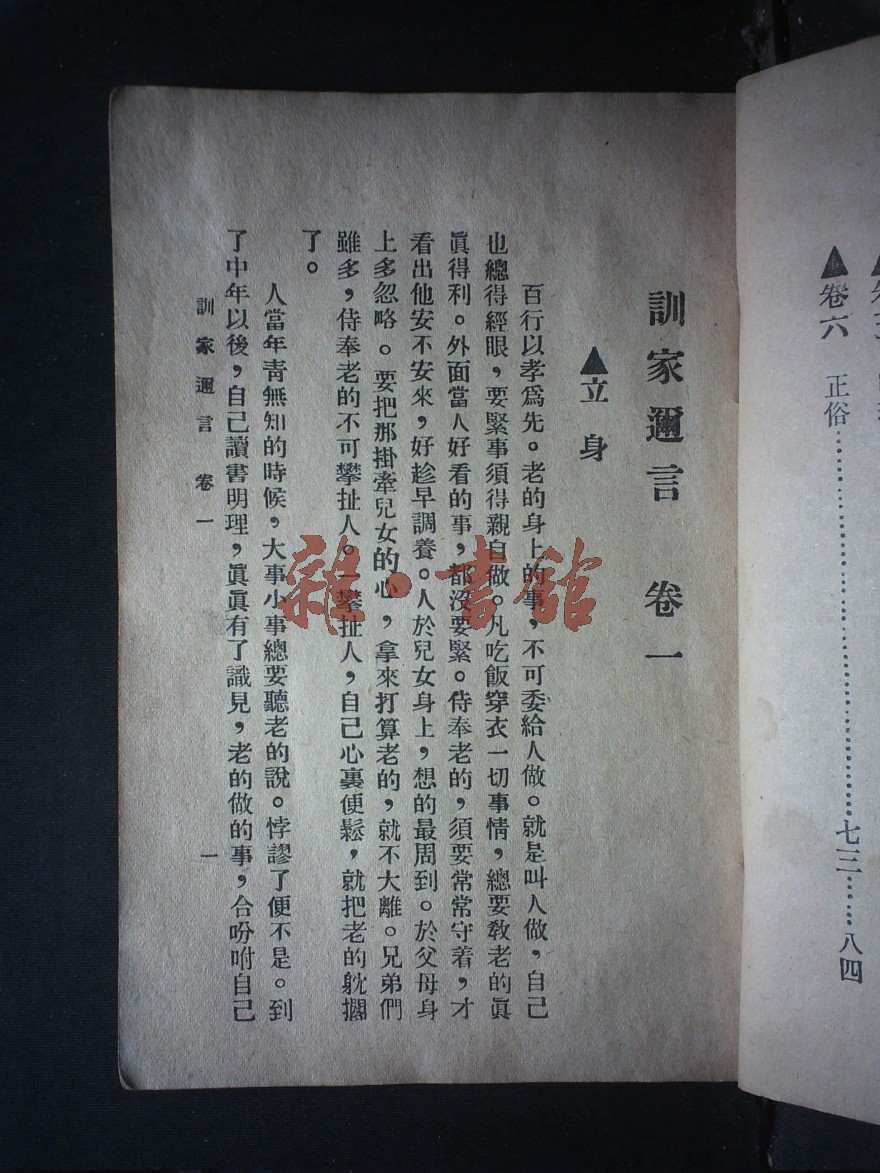 ▲卷六　正俗……………………七三……八四
訓家邇言　卷一
▲立　身
百行以孝爲先。老的身上的事，不可委給人做。就是叫人做，自己
也總得經眼，要緊事須得親自做。凡吃飯穿衣一切事情，總要敎老的眞
眞得利。外面當人好看的事，都沒要緊。侍奉老的，須要常常守着，才
看出他安不安來，好趁早調養。人於兒女身上，想的最周到。於父母身
上多忽略。要把那掛牽兒女的心，拿來打算老的，就不大離。兄弟們
雖多，侍奉老的不可攀扯人。一攀扯人，自己心裏便鬆，就把老的躭擱
了。
人當年靑無知的時候，大事小事總要聽老的說。悖謬了便不是。到
了中年以後，自己讀書明理，眞眞有了識見，老的做的事，合吩咐自己
訓家邇言　卷一　一
雜·書館